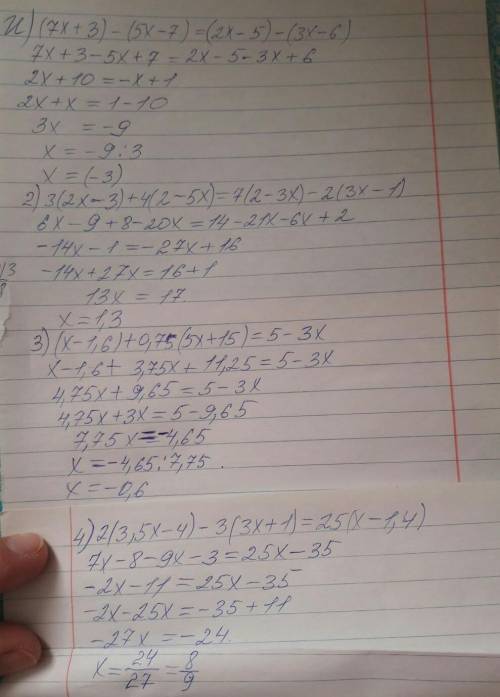 1) (7x+3)-(5x-7)=(2x-5)-(3x-6)
7x+3-5x+7=2x-5-3x+6
2x+10=-x+1
2x+x=1-10
3x=-9
x=-9:3
x=(-3)
2) 3(2x-3)+4(2-5x)=7(2-3x)-2(3x-1)
6x-9+8-20x=14-21x-6x+2
-14x-1=-27x+16
-14x+27x=16+1
13x=17
x=1,3
3) (x-1,6)+0,75(5x+15)=5-3x
x-1,6+3,75x+11,25=5-3x
4,75x+9,65=5-3x
4,75x+3x=5-9,65
7,75x=-4,65
x=-4,65:7,75.
x=-0,6
4) 2(3,5x-4)-3(3x+1)=25(x-1,4)
7x-8-9x-3=25x-35
-2x-11=25x-35
-2x-25x=-35+11
-27x=-24
x=24/27=8/9